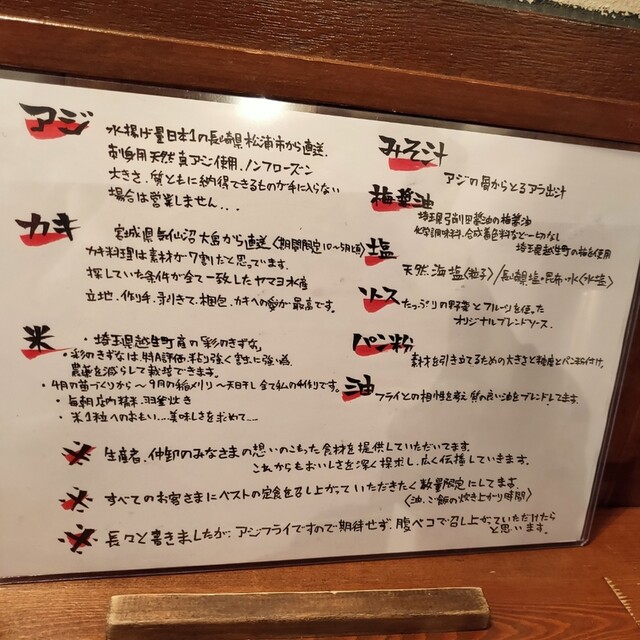 アジ
水揚げ量日本1の長崎県松浦市から直送、
刺身用天然真アジ使用、ノンフローズン
大きさ、質ともに納得できるものが手に入らない
場合は営業しません...
カキ
宮城県気仙沼大島から直送〈期間限定10〜5月頃〉
カキ料理は素材が7割だと思っています。
探していた条件が全て一致したヤマヨ水産
立地、作り手、手引きで、梱包、カキへの愛が最高です。
米
・埼玉県越生町産の「彩のきずな」
・彩のきずなは、特A評価、粘り強く割土に強い為、
農薬を減らして栽培できます。
・4月の苗づくりから〜9月の稲刈り〜天日干し全て私の手作りです。
・毎朝店内精米、羽釜炊き
・米1粒へのおもい...美味しさを求めて...
みそ汁
アジの骨からとるアラ出汁
梅醤油
埼玉県弓削田醤油の梅醤油
化学調味料、合成着色料など一切なし
埼玉県越生町の梅を使用
塩
天然海塩〈粒子〉/長崎県塩・昆布・水〈水塩〉
ソース
たっぷりの野菜とフルーツを使った
オリジナルブレンドソース。
パン粉
素材を引き立てるための大きさと糖度とパン粉付け。
油
フライとの相性を考え質の良い油をブレンドしてます。
生産者、仲卸のみなさまの想いのこもった食材を提供していただいてます。
これからもおいしさを深く探求し、広く伝播していきます。
すべてのお客さまにベストの定食を召し上がっていただきたく数量限定にしてます。
〈油、ご飯の炊き上がり時間〉
長々と書きましたが、アジフライですので期待せず、腹ペコで召し上がっていただけたら
と思います。